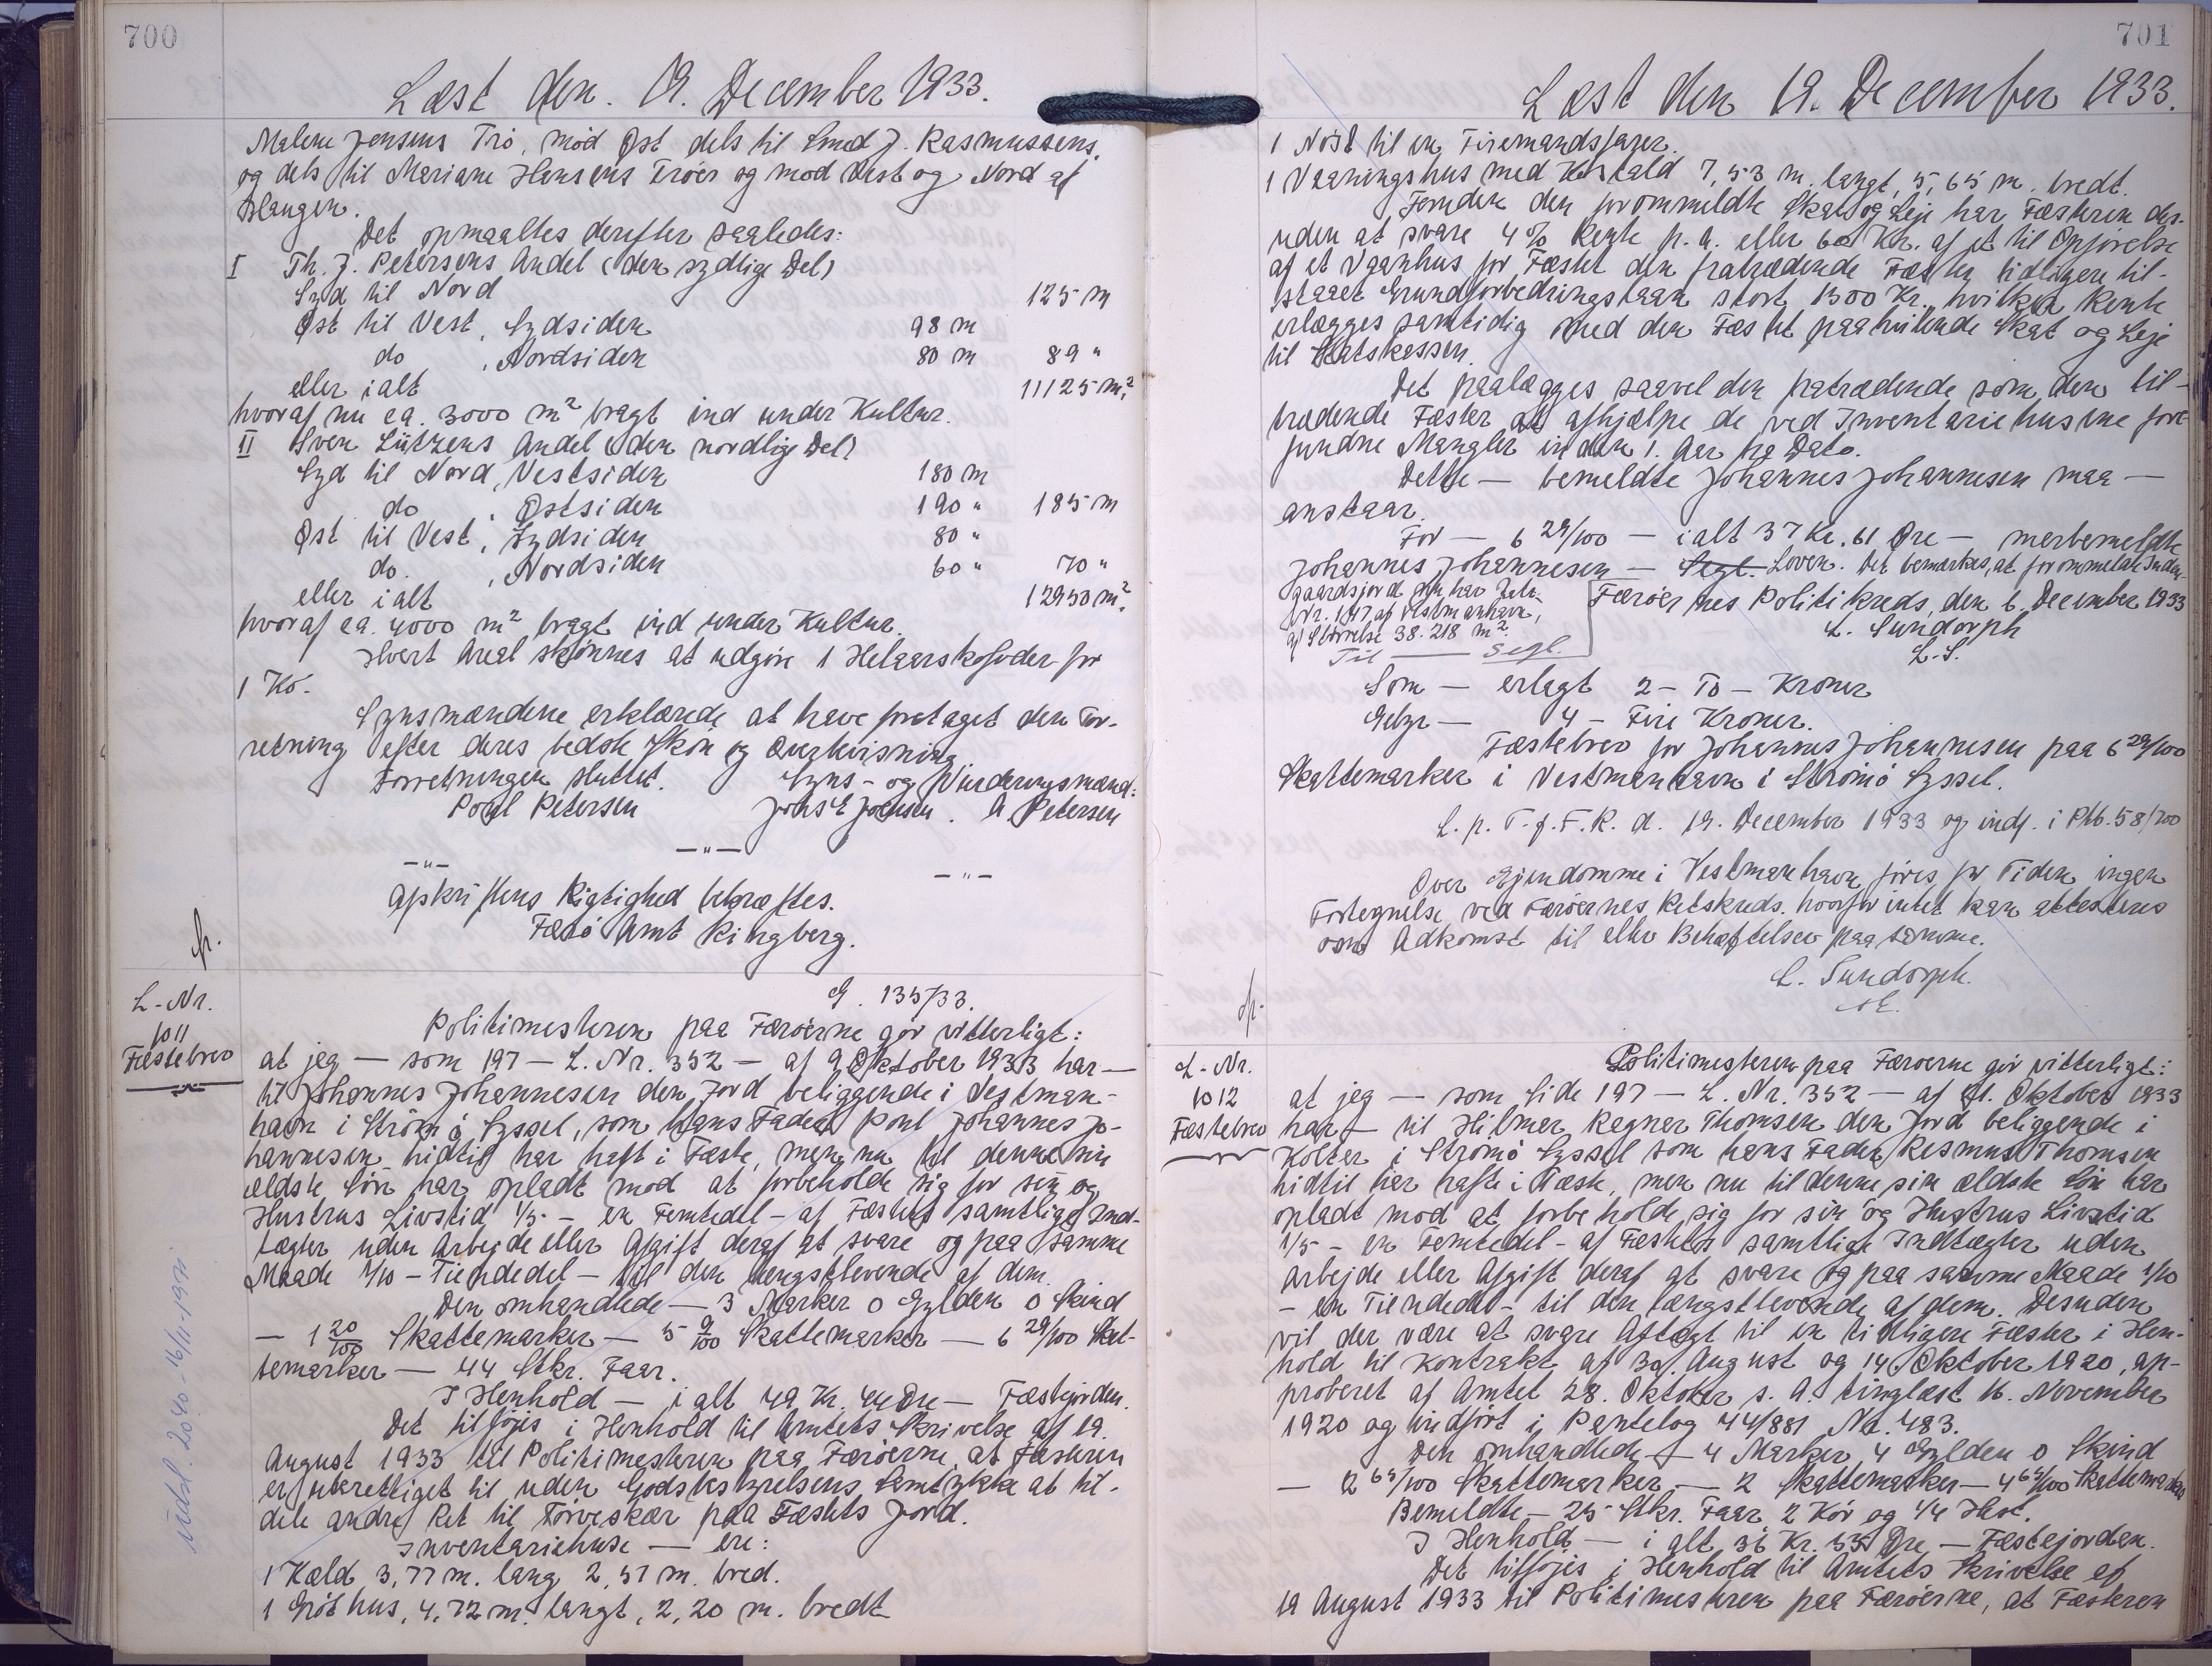 700
Læst den. 19. December 1933.
Malene Jensens Trö, mod Øst dels til Emed J. Rasmussens,
og dels til Mariane Hansens Tröer og mod Vest og Nord af
Hangen.
Det opmaaltes derefter saaledes:
I Th. J. Petersens Andel (den sydlige Del)
Syd til Nord 125 m
Øst til Vest, Sydsiden 98 m
do , Nordsiden 80 m 89 "
eller ialt 11125 m²,
hvoraf nu ca. 3000 m² bragt ind under Kultur.
II Sven Lützens Andel (den nordlige Del)
Syd til Nord, Vestsiden 180 m
do , Østsiden 190 " 185 m
Øst til Vest, Sydsiden 80 "
do. , Nordsiden 60 " 70 "
eller ialt 12950 m²,
hvoraf ca. 4000 m² bragt ind under Kultur.
Hvert Areal skjønnes at udgøre 1 Helaarskofoder for
1 Ko.
Synsmændene erklærede at have foretaget den For-
retning efter deres bedste Skön og Overbevisning.
Forretningen sluttet. Syns- og Vurderingsmænd:
Poul Petersen Johs E Joensen. A Petersen
-"- -"- -"-
Afskriftens Rigtighed bekræftes.
Færö Amt Ringberg.
fr.
G. 135/33.
L-Nr.
1011
Fæstebrev
Politimesteren paa Færöerne gör vitterligt:
at jeg — som 197 — L. Nr. 352 — af 9 Oktober 1933 har —
til Johannes Johannesen den Jord beliggende i Vestman-
havn i Strömö Syssel, som hans Fader Poul Johannes Jo-
hannesen hidtil har haft i Fæste, men nu til denne sin
ældste Sön har opladt mod at forbeholde sig for sin og
Hustrus Livstid 1/5 - en Femtedel - af Fæstets samtlige Ind-
tægter uden Arbejde eller Afgift deraf at svare og paa samme
Maade 1/10 - Tiendedel - til den længstlevende af dem.
Den omhandlede — 3 Marker 0 Gylden 0 Skind
— 1 20/100 Skattemarker — 5 9/100 Skattemarker — 6 29/100 Skat-
temarker — 44 Stkr. Faar.
I Henhold — i alt 49 Kr. 44 Øre — Fæstejorden.
Det tilföjes i Henhold til Amtets Skrivelse af 19.
August 1933 til Politimesteren paa Færöerne, at Fæsteren
er uberettiget til uden Godsbestyrelsens Samtykke at til-
dele andre Ret til Törveskær paa Fæstets Jord.
Inventariehuse — ere:
1 Kæld 3,77 m. lang 2,51 m. bred.
1 Gröthus, 4,72 m. langt, 2,20 m. bredt
Udsl. 2040 - 16/11-1971
701
Læst den 19. December 1933.
1 Nöst til en Firemandsfarer.
1 Vaaningshus med Kostald 7,53 m. langt, 5,65 m. bredt.
Foruden den foromreldte Skat og Leje har Fæsteren des-
uden at svare 4% Rente p. a. eller 60 Kr. af et til Opførelse
af et Vaanhus for Fæstet den fratrædende Fæster tidligere til-
staaet Grundforbedringslaan stort 1500 Kr., hvilken Rente
erlægges samtidig med den Fæstet paahvilende Skat og Leje
til Statskassen.
Det paalægges saavel den fratrædende som den til-
trædende Fæster at afhjælpe de ved Inventariehusene fore-
fundne Mangler inden 1. Aar fra Dato.
Dette — bemeldte Johannes Johannesen maa —
anstaar.
For — 6 29/100 — ialt 37 Kr. 61 Øre — merbemeldte
Johannes Johannesen — Segl. Loven. Det bemærkes, at forommeldte Inden-
gaardsjord
Nr. 197 af Vestmanhavn,
af Störrelse 38.218 m².
Til — Segl.
Færöernes Politikreds, den 6. December 1933
L. Sundorph
L.S.
Som — erlagt 2 - To - Kroner
Gebyr — 4 - Fire Kroner.
Fæstebrev for Johannes Johannesen paa 6 29/100
Skattemarker i Vestmanhavn i Strömö Syssel.
L. p. T. f. F. R. d. 19. December 1933 og indf. i Ptb. 58/700
Over Ejendomme i Vestmanhavn föres for Tiden ingen
Fortegnelse ved Færöernes Retskreds, hvorfor intet kan attesteres
om Adkomst til eller Behæftelser paa samme.
L. Sundorph.
fr.
L-Nr.
1012
Fæstebrev
Politimesteren paa Færoerne gör vitterligt:
at jeg — som Side 197 — L. Nr. 352 — af 9. Oktober 1933
har — til Hilmer Regner Thomsen den Jord beliggende i
Kolter i Strömö Syssel som hans Fader Rasmus Thomsen
hidtil har hafte i Fæste, men nu til denne sin ældste Sön har
opladt mod at forbeholde sig for sin og Hustrus Livstid
1/5 - en Femtedel - af Fæstets samtlige Indtægter uden
Arbejde eller Afgift deraf at svare og paa samme Maade 1/10
- en Tiendedel - til den længstlevende af dem. Desuden
vil der være at svare Aftægt til en tidligere Fæster i Hen-
hold til Kontrakt af 30. August og 14 Oktober 1920, ap-
proberet af Amtet 28. Oktober s. A. tinglæst 16. November
1920 og indfört i Pantebog 44/881 No. 483.
Den omhandlede — 4 Marker 4 Gylden 0 Skind
— 2 65/100 Skattemarker — 2 Skattemarker — 4 65/100 Skattemarker
Bemeldte — 25 Stkr. Faar 2 Kör og 1/4 Hest.
I Henhold — i alt 36 Kr. 55 Øre — Fæstejorden.
Det tilföjes i Henhold til Amtets Skrivelse af
19 August 1933 til Politimesteren paa Færöerne, at Fæsteren